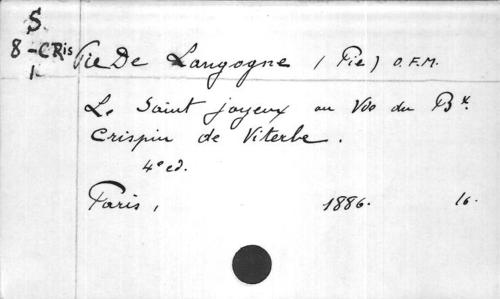 S
8-CRis
1
Pie De Langogne (Pie) O.F.M.
Le Saint joyeux ou Vie du Bx.
Crispin de Viterbe.
4e ed.
Paris, 1886. 16.